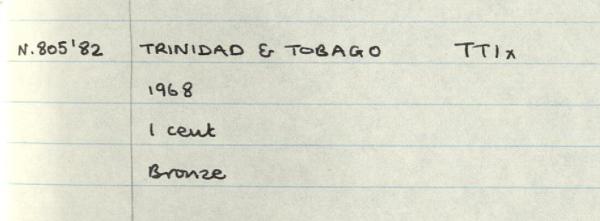 N.805'82 TRINIDAD & TOBAGO TT1x
1968
1 cent
Bronze